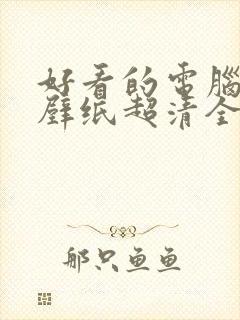 好看的电腦
壁纸超清全
那只鱼鱼